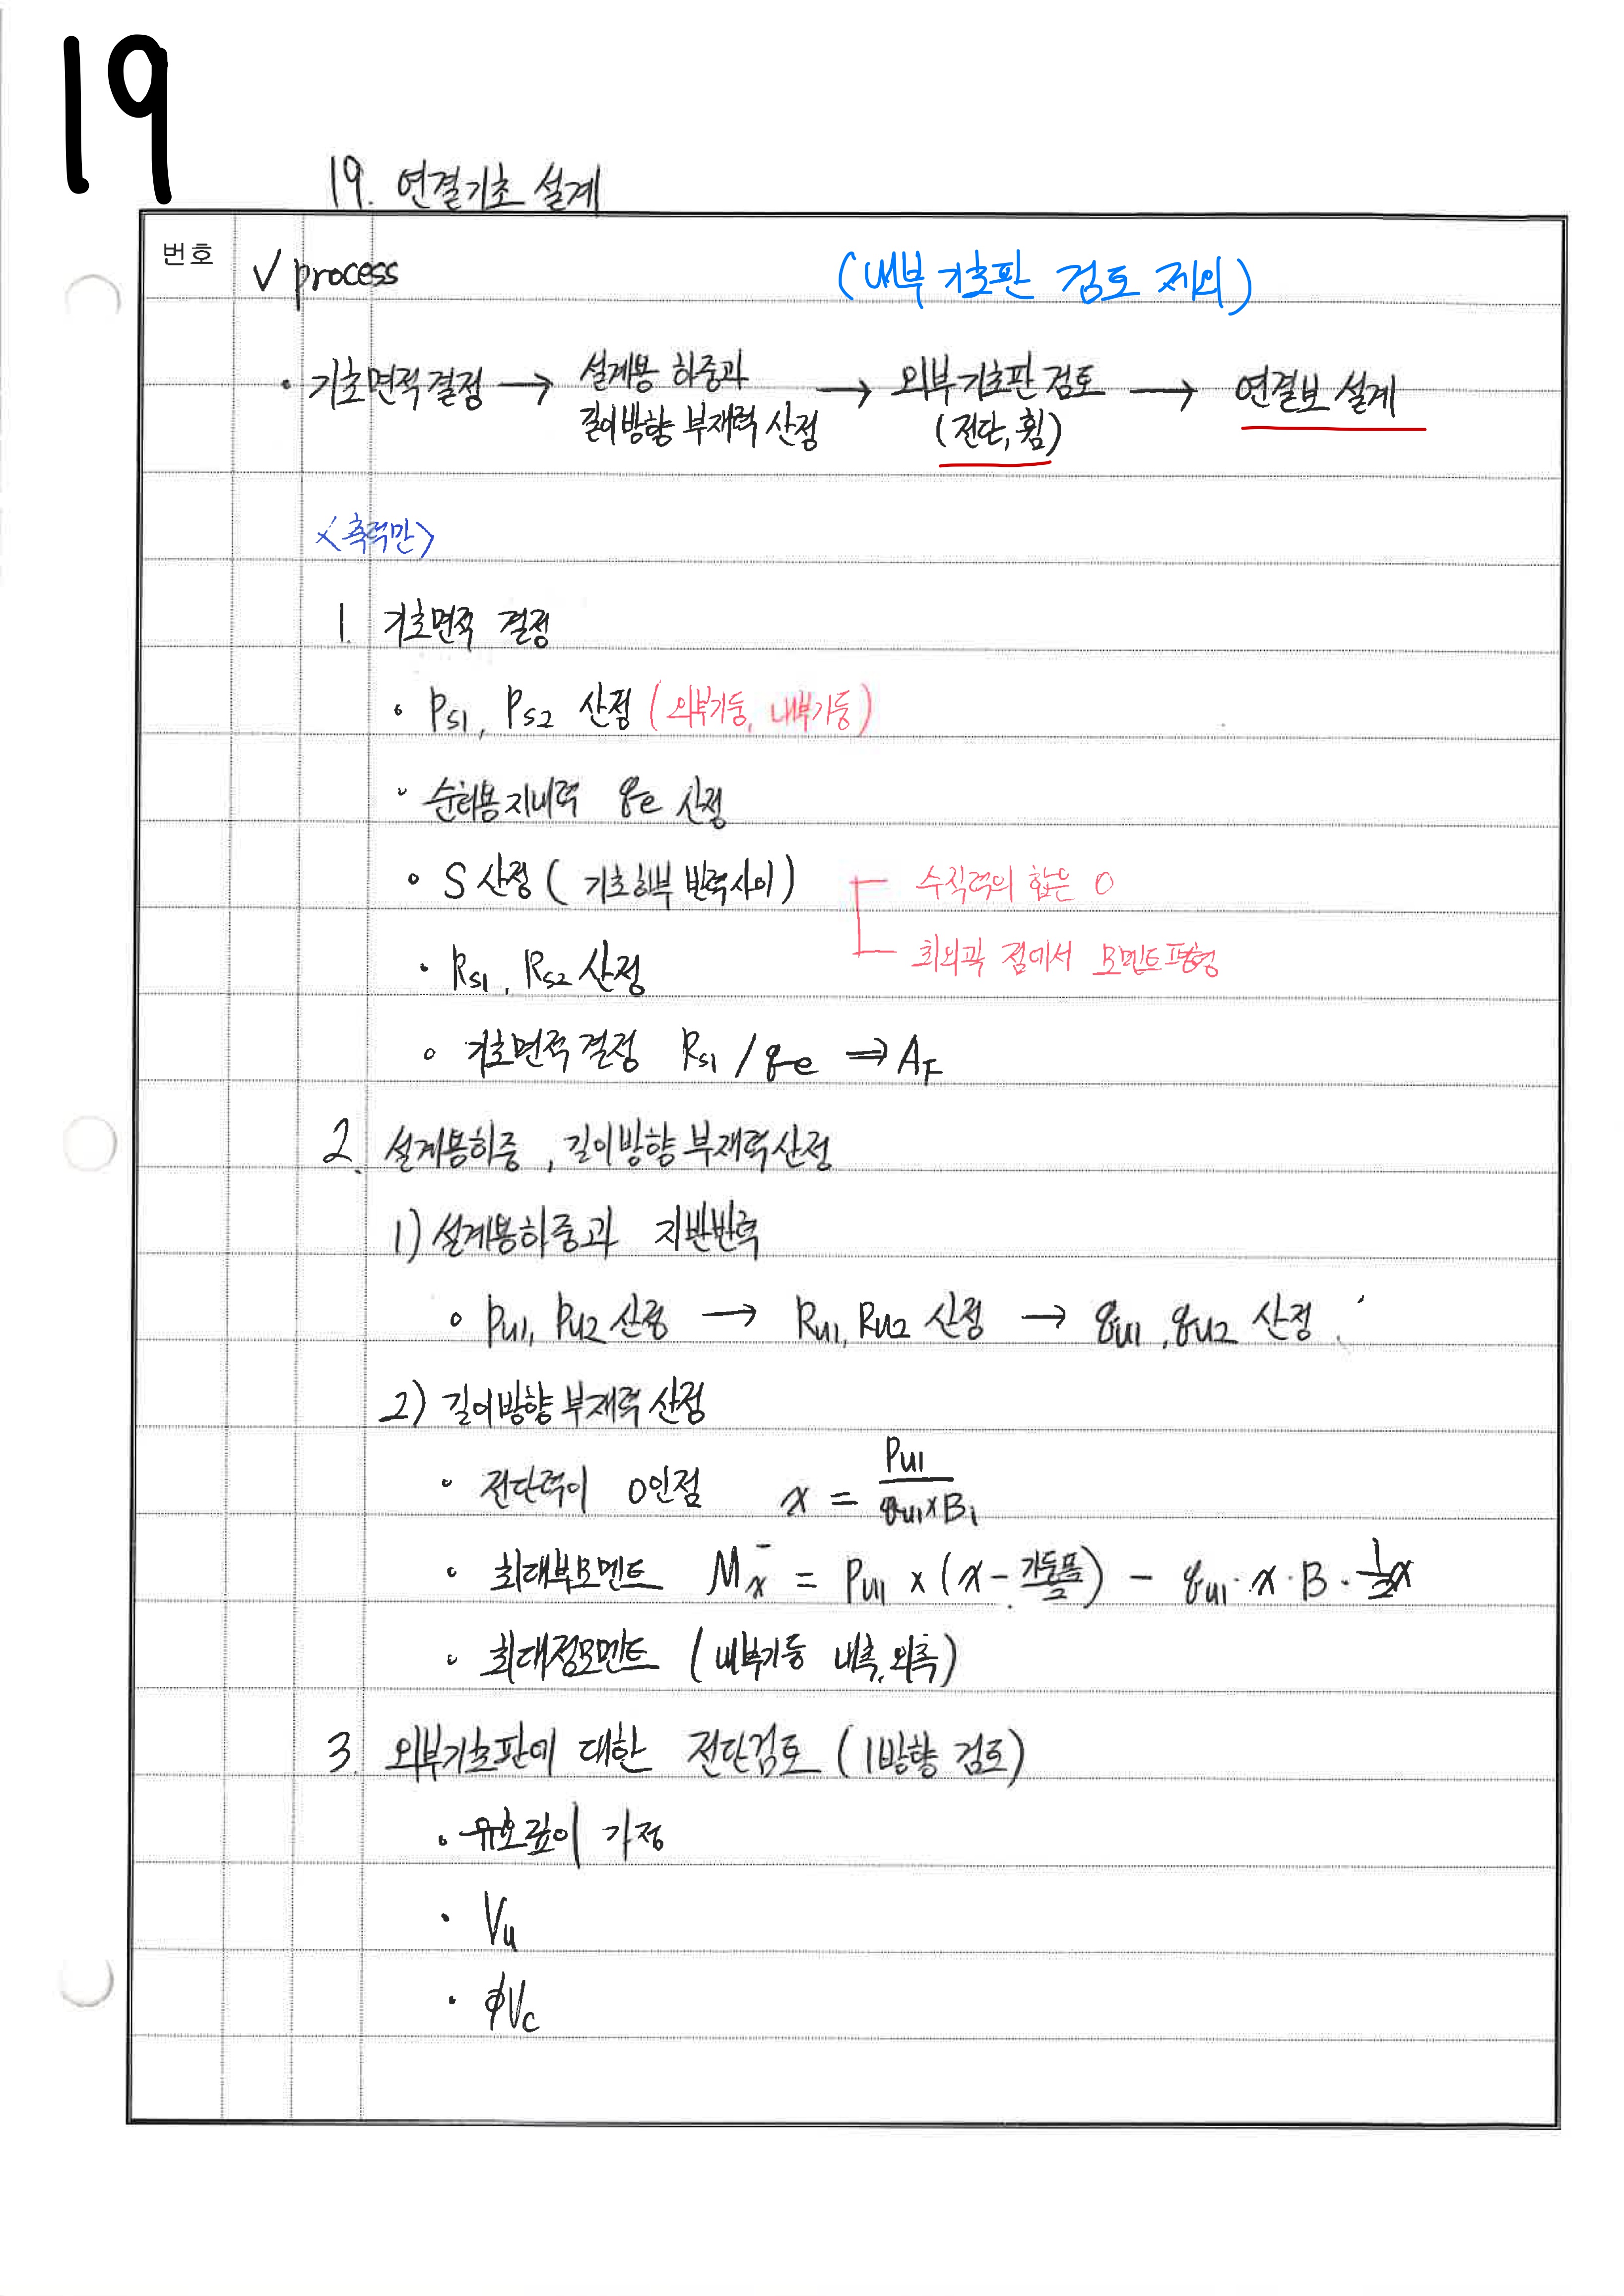 19
19. 연결기초 설계
번호
√ process
(내부 기초판 검토 제외)
• 기초면적결정 → 설계용 하중과 길이방향 부재력 산정 → 외부기초판 검토 (전단, 휨) → 연결보 설계
<축력만>
1. 기초면적 결정
• Ps1, Ps2 산정 (외부기둥, 내부기둥)
• 순허용지내력 qe 산정
• S 산정 ( 기초하부 반력사이)
수직력의 합은 0
최외곽 점에서 모멘트평형
• Rs1, Rs2 산정
• 기초면적 결정 Rs1 / qe ⇒ AF
2. 설계용하중, 길이방향 부재력산정
1) 설계용하중과 지반반력
• Pu1, Pu2 산정 → Ru1, Ru2 산정 → qu1, qu2 산정
2) 길이방향 부재력 산정
• 전단력이 0인점 x = Pu1 / qu1×B1
• 최대부모멘트 Mx⁻ = Pu1 × (x - 기둥폭/2) - qu1 · x · B · 1/2x
• 최대정모멘트 (내부기둥 내측, 외측)
3. 외부기초판에 대한 전단검토 (1방향 검토)
• 유효깊이 가정
• Vu
• φVc